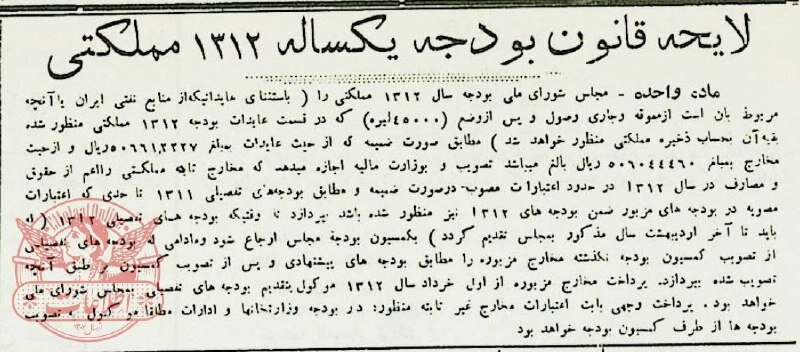 لایحه قانون بودجه یکساله ۱۳۱۲ مملکتی
ماده واحده - مجلس شورای ملی بودجه سال ۱۳۱۲ مملکتی را ( باستثنای عایداتیکه از منابع نفتی ایران یا آنچه
مربوط بان است از معوقه و جاری وصول و پس از وضع (۴۵۰۰۰ لیره) که در قسمت عایدات بودجه ۱۳۱۲ مملکتی منظور شده
بقیه آن بحساب ذخیره مملکتی منظور خواهد شد ) مطابق صورت ضمیمه که از حیث عایدات بمبلغ ۵۰۶۶۱۲۲۲۷ ریال و از حیث
مخارج بمبلغ ۵۰۶۰۴۴۴۶۰ ریال بالغ میباشد تصویب و بوزارت مالیه اجازه میدهد که مخارج ثابه مملکتی را اعم از حقوق
و مصارف در سال ۱۳۱۲ در حدود اعتبارات مصوب در صورت ضمیمه و مطابق بودجه‌های تفصیلی ۱۳۱۱ تا حدی که اعتبارات
مصوبه در بودجه های مزبور ضمن بودجه های ۱۳۱۲ نیز منظور شده باشد بپردازد تا وقتیکه بودجه های تفصیلی ۱۳۱۲ ( که
باید تا آخر اردیبهشت سال مذکور بمجلس تقدیم گردد ) بکمسیون بودجه مجلس ارجاع شود و مادامی که بودجه های تفصیلی
از تصویب کمسیون بودجه نگذشته مخارج مزبوره را مطابق بودجه های پیشنهادی و پس از تصویب کمسیون بر طبق آنچه
تصویب شده بپردازد. پرداخت مخارج مزبوره از اول خرداد سال ۱۳۱۲ موکول بتقدیم بودجه های تفصیلی بمجلس شورای ملی
خواهد بود . پرداخت وجهی بابت اعتبارات مخارج غیر ثابته منظور: در بودجه وزارتخانها و ادارات مطلقا موکول به تصویب
بودجه ها از طرف کمسیون بودجه خواهد بود
اطلاعات